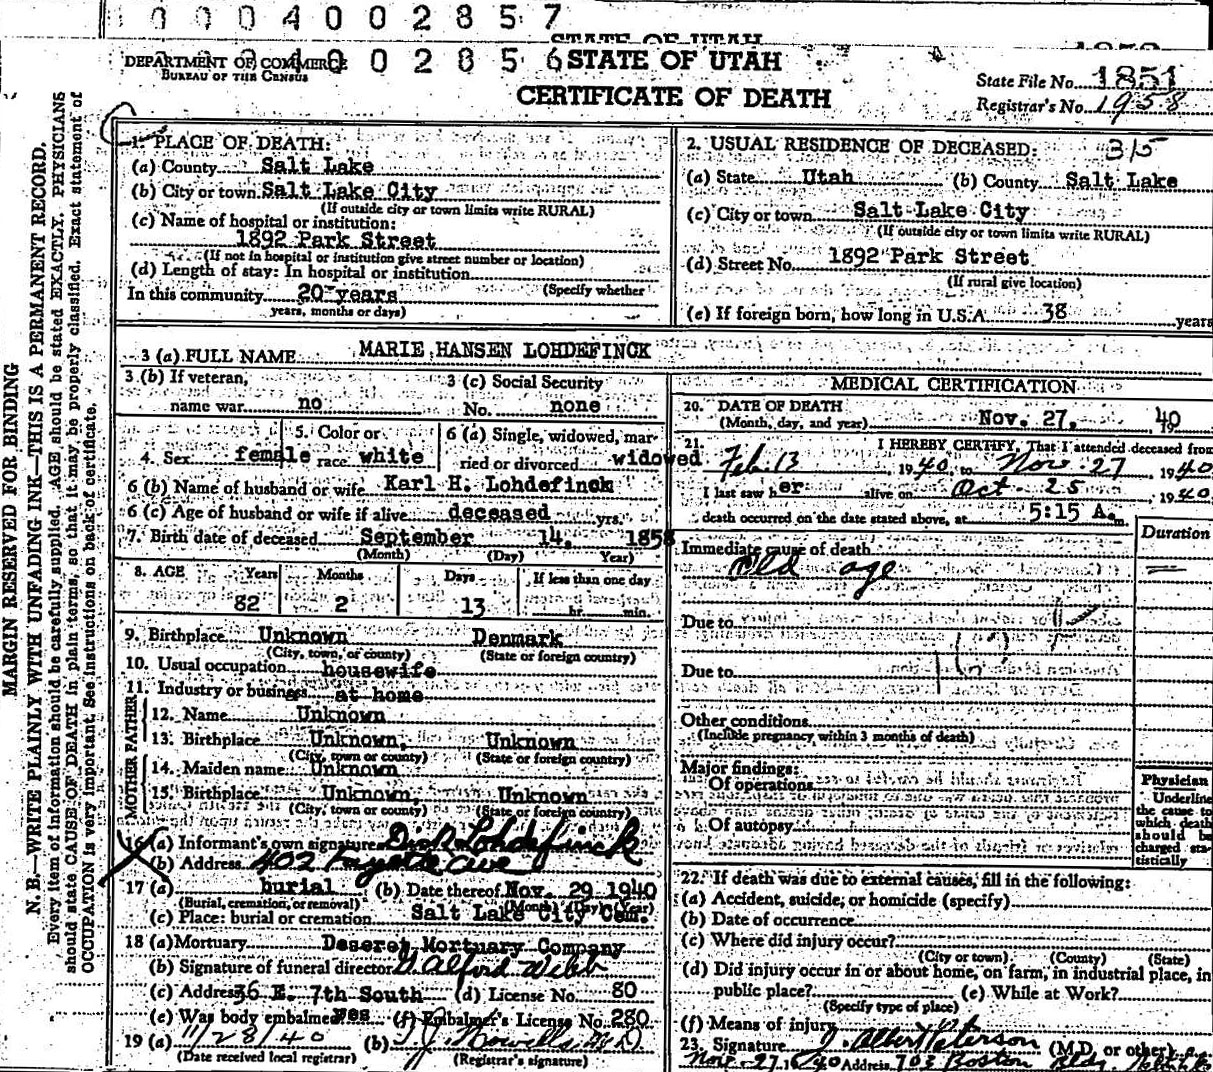 0 0 0 4 0 0 2 8 5 7
STATE OF UTAH
DEPARTMENT OF COMMERCE 0 0 2 8 5 6 STATE OF UTAH
BUREAU OF THE CENSUS
CERTIFICATE OF DEATH
State File No. 1851
Registrar's No. 1958
MARGIN RESERVED FOR BINDING
N. B.—WRITE PLAINLY WITH UNFADING INK—THIS IS A PERMANENT RECORD.
Every item of information should be carefully supplied. AGE should be stated EXACTLY. PHYSICIANS
should state CAUSE OF DEATH in plain terms, so that it may be properly classified. Exact statement of
OCCUPATION is very important. See instructions on back of certificate.
1. PLACE OF DEATH:
(a) County Salt Lake
(b) City or town Salt Lake City
(If outside city or town limits write RURAL)
(c) Name of hospital or institution:
1892 Park Street
(If not in hospital or institution give street number or location)
(d) Length of stay: In hospital or institution
(Specify whether
In this community 20 years
years, months or days)
2. USUAL RESIDENCE OF DECEASED: 315
(a) State Utah (b) County Salt Lake
(c) City or town Salt Lake City
(If outside city or town limits write RURAL)
(d) Street No. 1892 Park Street
(If rural give location)
(e) If foreign born, how long in U.S.A. 38 years
3 (a) FULL NAME MARIE HANSEN LOHDEFINCK
3 (b) If veteran, name war no
3 (c) Social Security No. none
4. Sex female 5. Color or race white 6 (a) Single, widowed, married or divorced widowed
6 (b) Name of husband or wife Karl H. Lohdefinck
6 (c) Age of husband or wife if alive deceased yrs.
7. Birth date of deceased September 14, 1858
(Month) (Day) Year)
8. AGE Years Months Days If less than one day
82 2 13 hr. min.
9. Birthplace Unknown Denmark
(City, town, or county) (State or foreign country)
10. Usual occupation housewife
11. Industry or business at home
FATHER
12. Name Unknown
13. Birthplace Unknown, Unknown
(City, town or county) (State or foreign country)
MOTHER
14. Maiden name Unknown
15. Birthplace Unknown, Unknown
(City, town or county) (State or foreign country)
16 (a) Informant's own signature Dick Lohdefinck
(b) Address 402 Fayette Ave
17 (a) burial (b) Date thereof Nov. 29 1940
(Burial, cremation, or removal) (Month) (Day) (Year)
(c) Place: burial or cremation Salt Lake City Cem.
18 (a) Mortuary Deseret Mortuary Company
(b) Signature of funeral director G. Alford Webb
(c) Address 36 E. 7th South (d) License No. 80
(e) Was body embalmed yes (f) Embalmer's License No. 280
19 (a) 11/28/40 (b) M.D.
(Date received local registrar) (Registrar's signature)
MEDICAL CERTIFICATION
20. DATE OF DEATH
(Month, day, and year) Nov. 27, 1940
21. I HEREBY CERTIFY, That I attended deceased from
Feb. 13 1940, to Nov. 27 1940
I last saw her alive on Oct - 25, 1940
death occurred on the date stated above, at 5:15 A. m.
Duration
Immediate cause of death
Old age
Due to
Due to
Other conditions
(Include pregnancy within 3 months of death)
Major findings:
Of operations
Of autopsy
Physician
Underline the cause to which death should be charged statistically
22. If death was due to external causes, fill in the following:
(a) Accident, suicide, or homicide (specify)
(b) Date of occurrence
(c) Where did injury occur?
(City or town) (County) (State)
(d) Did injury occur in or about home, on farm, in industrial place, in
public place? (e) While at Work?
(Specify type of place)
(f) Means of injury
23. Signature J. Albert Peterson (M.D. or other)
Nov-27-1940 Address 703 Boston Bldg.